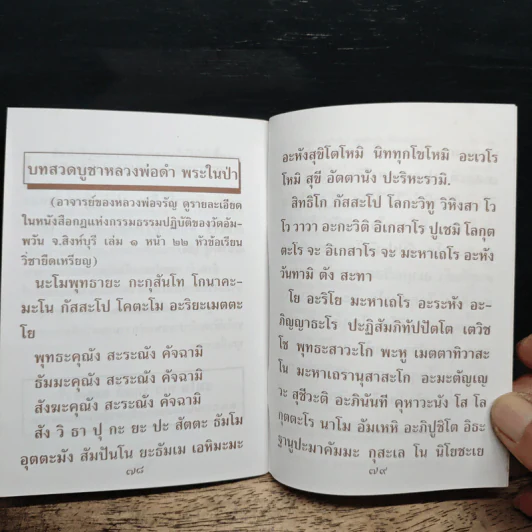 บทสวดบูชาหลวงพ่อดำ พระในป่า
(อาจารย์ของหลวงพ่อจรัญ ดูรายละเอียด
ในหนังสือกฎแห่งกรรมธรรมปฏิบัติของวัดอัม-
พวัน จ.สิงห์บุรี เล่ม ๑ หน้า ๒๒ หัวข้อเรียน
วิชายืดเหรียญ)
นะโมพุทธายะ กะกุสันโท โกนาคะ-
มะโน กัสสะโป โคตะโม อะริยะเมตตะ
โย
พุทธะคุณัง สะระณัง คัจฉามิ
ธัมมะคุณัง สะระณัง คัจฉามิ
สังฆะคุณัง สะระณัง คัจฉามิ
สัง วิ ธา ปุ กะ ยะ ปะ สัตตะ ธัมโม
อุตตะมัง สัมปันโน ยะธัมเม เอหิมะมะ
๗๘
อะหังสุขิโตโหมิ นิททุกโขโหมิ อะเวโร
โหมิ สุขี อัตตานัง ปะริหะรามิ.
สิทธิโก กัสสะโป โลกะวิทู วิหิงสา โว
โว วาวา อะกะวิติ อิเกสาโร ปูเชมิ โลกุต
ตะโร จะ อิเกสาโร จะ มะหาเถโร อะหัง
วันทามิ ตัง สะทา
โย อะริโย มะหาเถโร อะระหัง อะ-
ภิญญาธะโร ปะฏิสัมภิทัปปัตโต เตวิช
โช พุทธะสาวะโก พะหู เมตตาทิวาสะ
โน มะหาเถรานุสาสะโก อะมะตัญเญ
วะ สุชีวะติ อะภินันที คุหาวะนัง โส โล
กุตตะโร นาโม อัมเหหิ อะภิปูชิโต อิธะ
ฐานูปะมาคัมมะ กุสะเล โน นิโยชะเย
๗๙